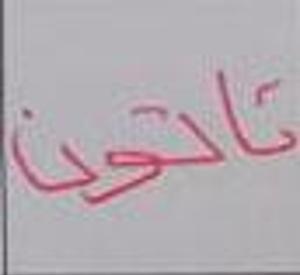 تاتون